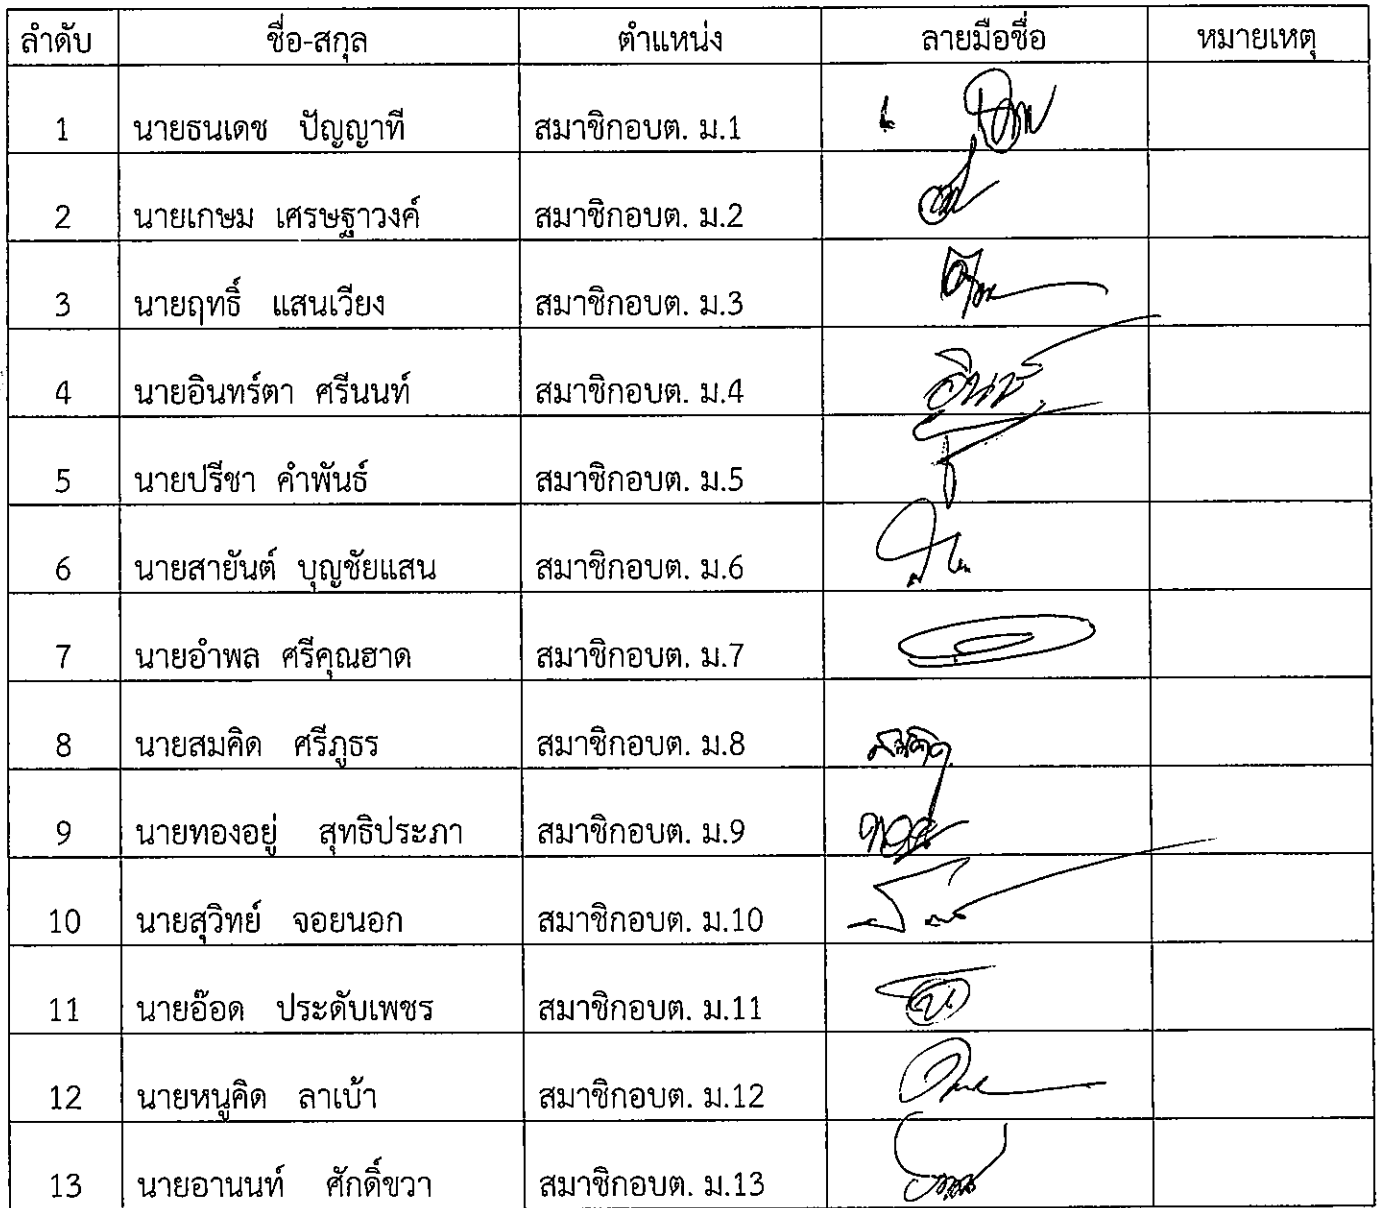 ลำดับ ชื่อ-สกุล ตำแหน่ง ลายมือชื่อ หมายเหตุ
1 นายธนเดช ปัญญาที สมาชิกอบต. ม.1
2 นายเกษม เศรษฐาวงค์ สมาชิกอบต. ม.2
3 นายฤทธิ์ แสนเวียง สมาชิกอบต. ม.3
4 นายอินทร์ตา ศรีนนท์ สมาชิกอบต. ม.4
5 นายปรีชา คำพันธ์ สมาชิกอบต. ม.5
6 นายสายันต์ บุญชัยแสน สมาชิกอบต. ม.6
7 นายอำพล ศรีคุณฮาด สมาชิกอบต. ม.7
8 นายสมคิด ศรีภูธร สมาชิกอบต. ม.8 สมคิด
9 นายทองอยู่ สุทธิประภา สมาชิกอบต. ม.9
10 นายสุวิทย์ จอยนอก สมาชิกอบต. ม.10
11 นายอ๊อด ประดับเพชร สมาชิกอบต. ม.11
12 นายหนูคิด ลาเบ้า สมาชิกอบต. ม.12
13 นายอานนท์ ศักดิ์ขวา สมาชิกอบต. ม.13